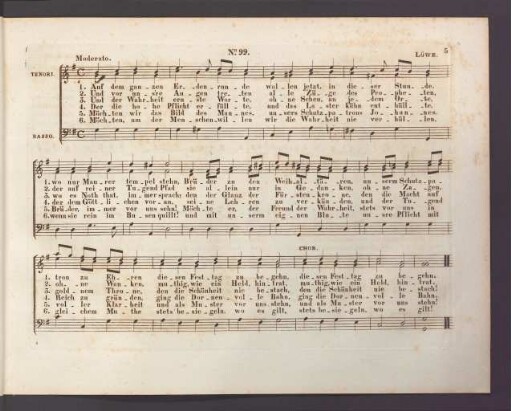 Nº 99.
5
Moderato.
LÖWE.
TENORI.
1. Auf dem gan_zen Er_den_run_de wol_len jetzt, in die_ser Stun_de,
2. Und vor uns_re Au_gen tre_ten al_le Zü_ge des Pro_phe_ten,
3. Und der Wahr_heit ern_ste Wor_te, oh_ne Scheu, an je_dem Or_te,
4. Der die ho_he Pflicht er_füll_te, und das La_ster kühn ent_hüll_te,
5. Möch_ten wir das Bild des Man_nes, un_sers Schutz_pa_trons Jo_han_nes,
6. Möch_ten, um der Men_schen wil_len wir die Wahrheit nie ver_hül_len,
BASSO.
1. wo nur Mau_rer tem_pel stehn, Brü_der zu den Weih_al_tä_ren, un_serm Schutz_pa_
2. der auf sei_ner Tu_gend Pfad sie al_lein nur in Ge_dan_ken, oh_ne Za_gen,
3. wo es Noth that, im_mer sprach; den der Glanz der Für_sten kro_nen, den die Macht auf
4. der dem Gött_li_chen voran, sei_ne Leh_ren zu ver_kün_den, und der Tu_gend
5. Brü_der, im_mer vor uns sehn! Möch_te er, der Freund der Wahrheit, stets vor uns in
6. wenn sie rein im Bu_sen quillt! und mit un_serm eig_nen Blu_te uns_re Pflicht mit
CHOR.
1. tron zu Eh_ren die_sen Fest_tag zu be_gehn, die_sen Fest_tag zu be_gehn.
2. oh_ne Wan_ken, mu_thig, wie ein Held, hin_trat, mu_thig, wie ein Held, hin_trat.
3. gold_nem Thro_ne, den die Schönheit nie be_stach, den die Schönheit nie be_stach!
4. Reich zu grün_den, ging die Dor_nen_vol_le Bahn, ging die Dor_nen_vol_le Bahn.
5. vol_ler Klar_heit und als Mu_ster vor uns stehn, und als Mu_ster vor uns stehn!
6. glei_chem Mu_the stets be_sie_geln, wo es gilt, stets be_sie_geln, wo es gilt!